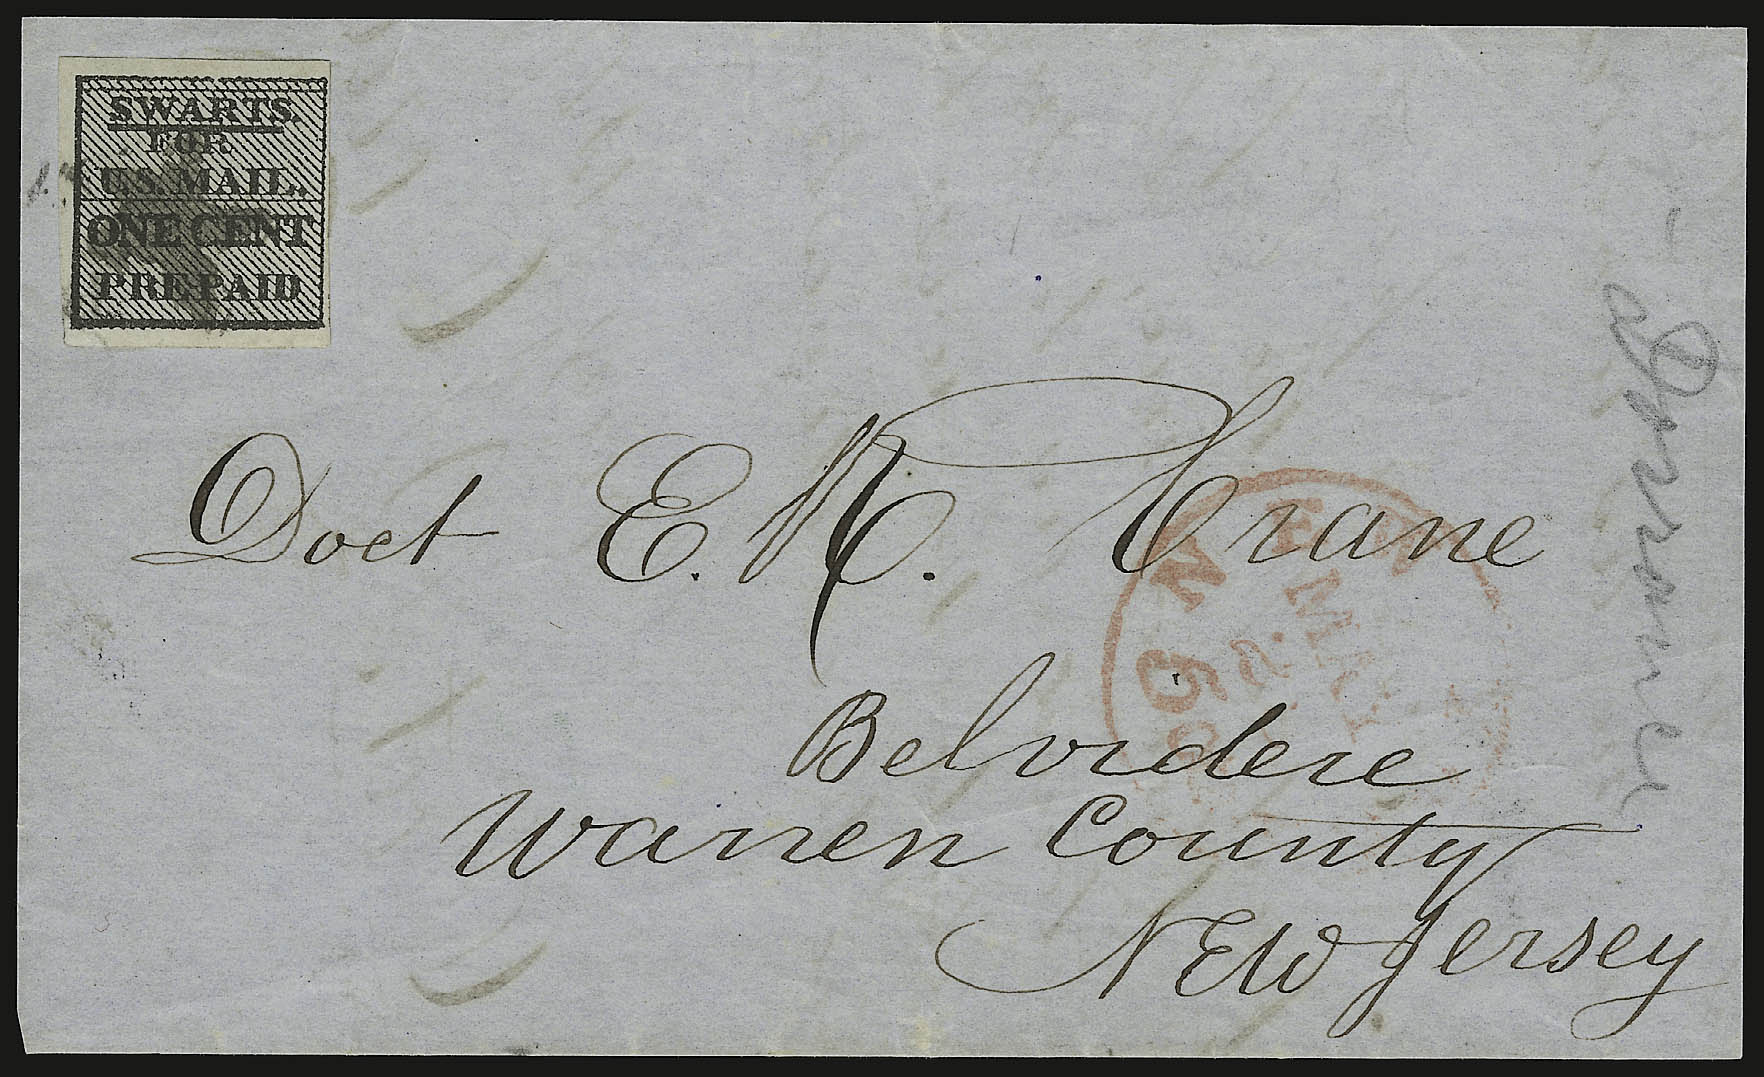 SWARTS.
FOR
U.S. MAIL.
ONE CENT
PREPAID
Doct E. K. Crane
Belvidere
Warren County
New Jersey
NEW
MAY